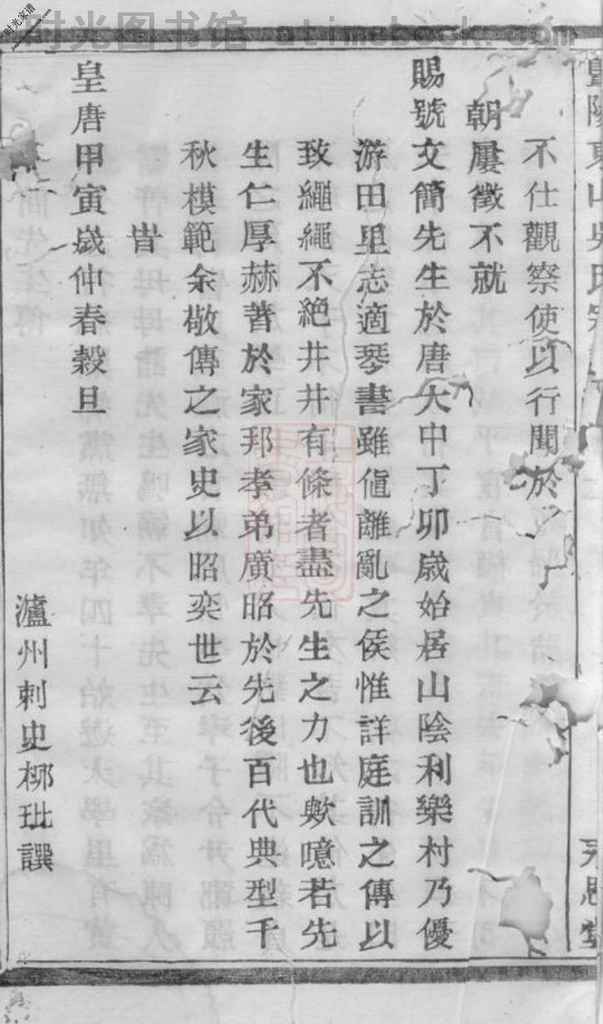 暨陽東山吳氏宗
不仕觀察使以行聞於
朝屢徵不就
賜號文簡先生於唐大中丁卯歲始居山陰利樂村乃優
游田里志適琴書雖値離亂之侯惟詳庭訓之傳以
致繩繩不絶井井有條者盡先生之力也歟噫若先
生仁厚赫著於家邦孝弟廣昭於先後百代典型千
秋模範余敬傳之家史以昭奕世云
旹
皇唐甲寅歲仲春穀旦
瀘州刺史栁玭譔
时光图书馆 atimebook.com
时光家谱